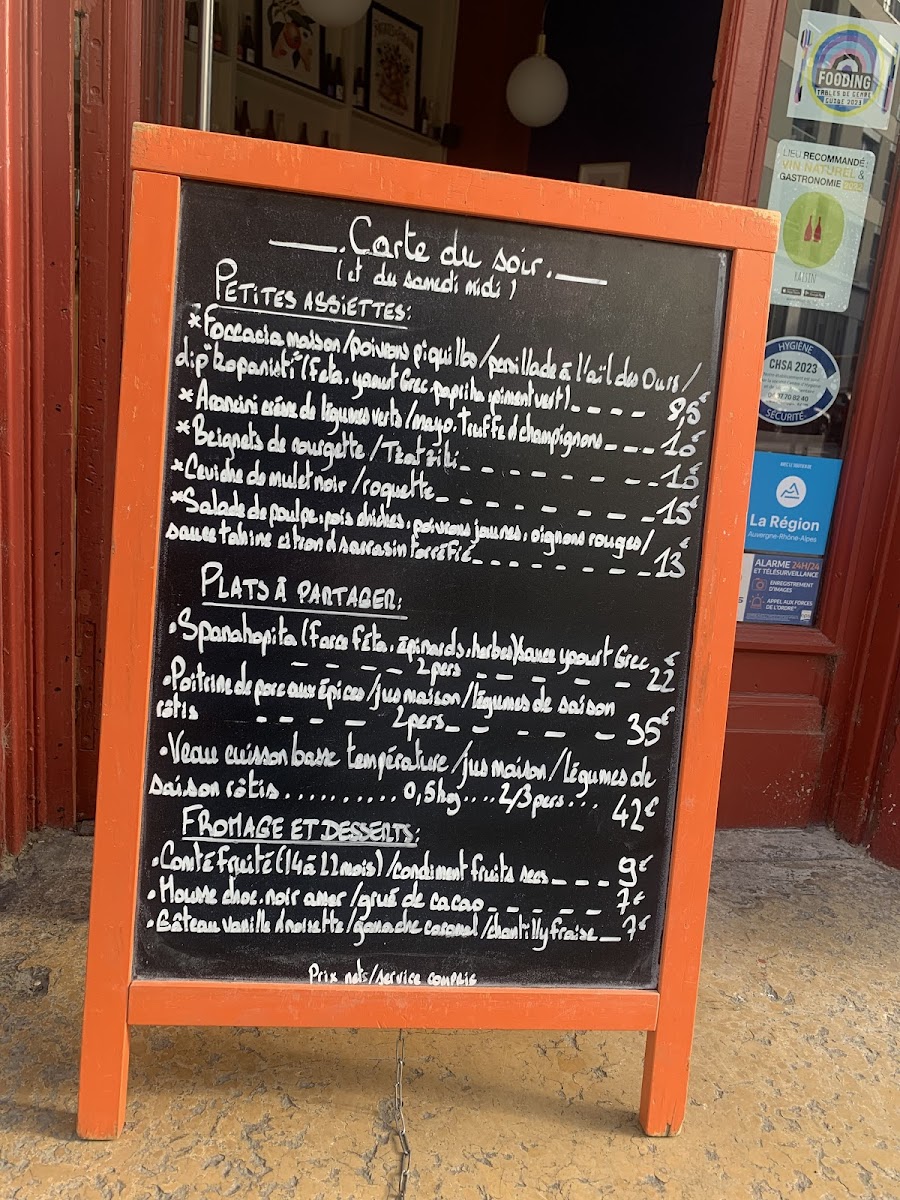 Carte du soir.
(et du samedi midi)
PETITES ASSIETTES:
*Foccacia maison/poivrons piquillos/persillade à l'ail des Ours/
dip "Kopanisti" (Feta, yaourt Grec, paprika, piment vert) 8,5€
*Arancini crème de légumes verts/mayo. Truffe & champignons 10€
*Beignets de courgette/Tzatziki 10€
*Ceviche de mulet noir/roquette 15€
*Salade de poulpe, pois chiches, poivrons jaunes, oignons rouges/
sauce tahine citron & sarrasin torréfié 13€
PLATS À PARTAGER:
•Spanakopita (farce féta, épinards, herbes)/sauce yaourt Grec
2pers 22€
•Poitrine de porc aux épices/jus maison/légumes de saison
rôtis 2pers 35€
•Veau cuisson basse température/jus maison/légumes de
saison rôtis .......... 0,5kg .... 2/3pers ... 42€
FROMAGE ET DESSERTS:
•Comté fruité (14 à 22 mois)/condiment fruits secs 9€
•Mousse choc. noir amer/grué de cacao 7€
•Gâteau vanille & noisette/ganache caramel/chantilly fraise 7€
Prix nets/service compris
FOODING
TABLES DE GEMME
GUIDE 2023
LIEU RECOMMANDÉ
VIN NATUREL &
GASTRONOMIE
RAISIN
HYGIÈNE
CHSA 2023
SÉCURITÉ
La Région
Auvergne-Rhône-Alpes
ALARME 24H/24
ET TÉLÉSURVEILLANCE
ENREGISTREMENT
D'IMAGES
APPEL AUX FORCES
DE L'ORDRE